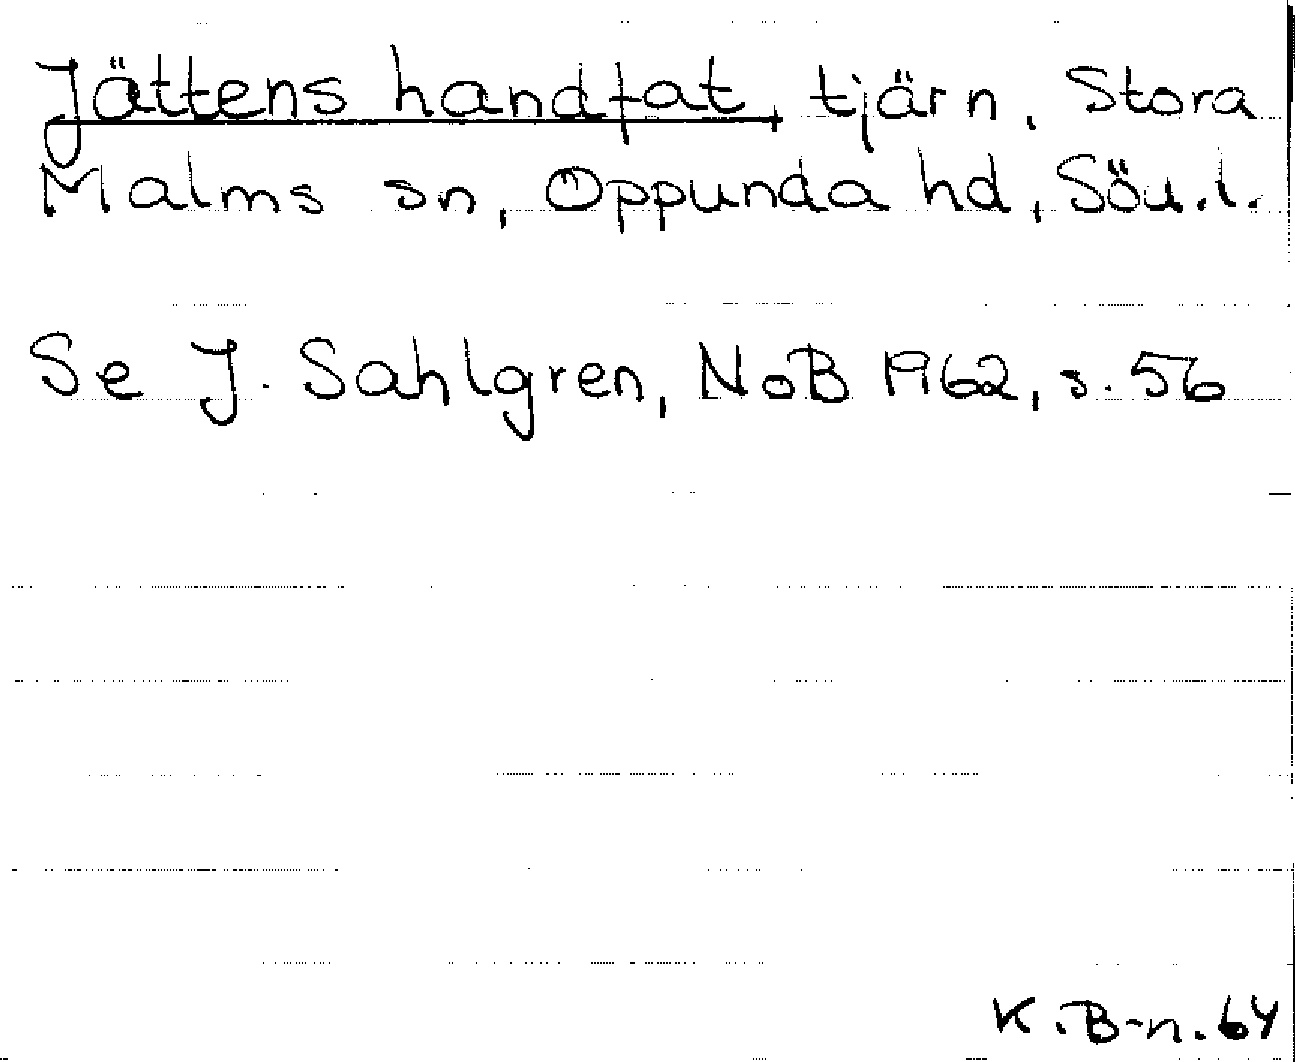 Jättens handfat, tjärn, Stora
Malms sn, Öppunda hd, Söd.l.
Se J. Sahlgren, NoB 1962, s. 56
K.B-n. 64